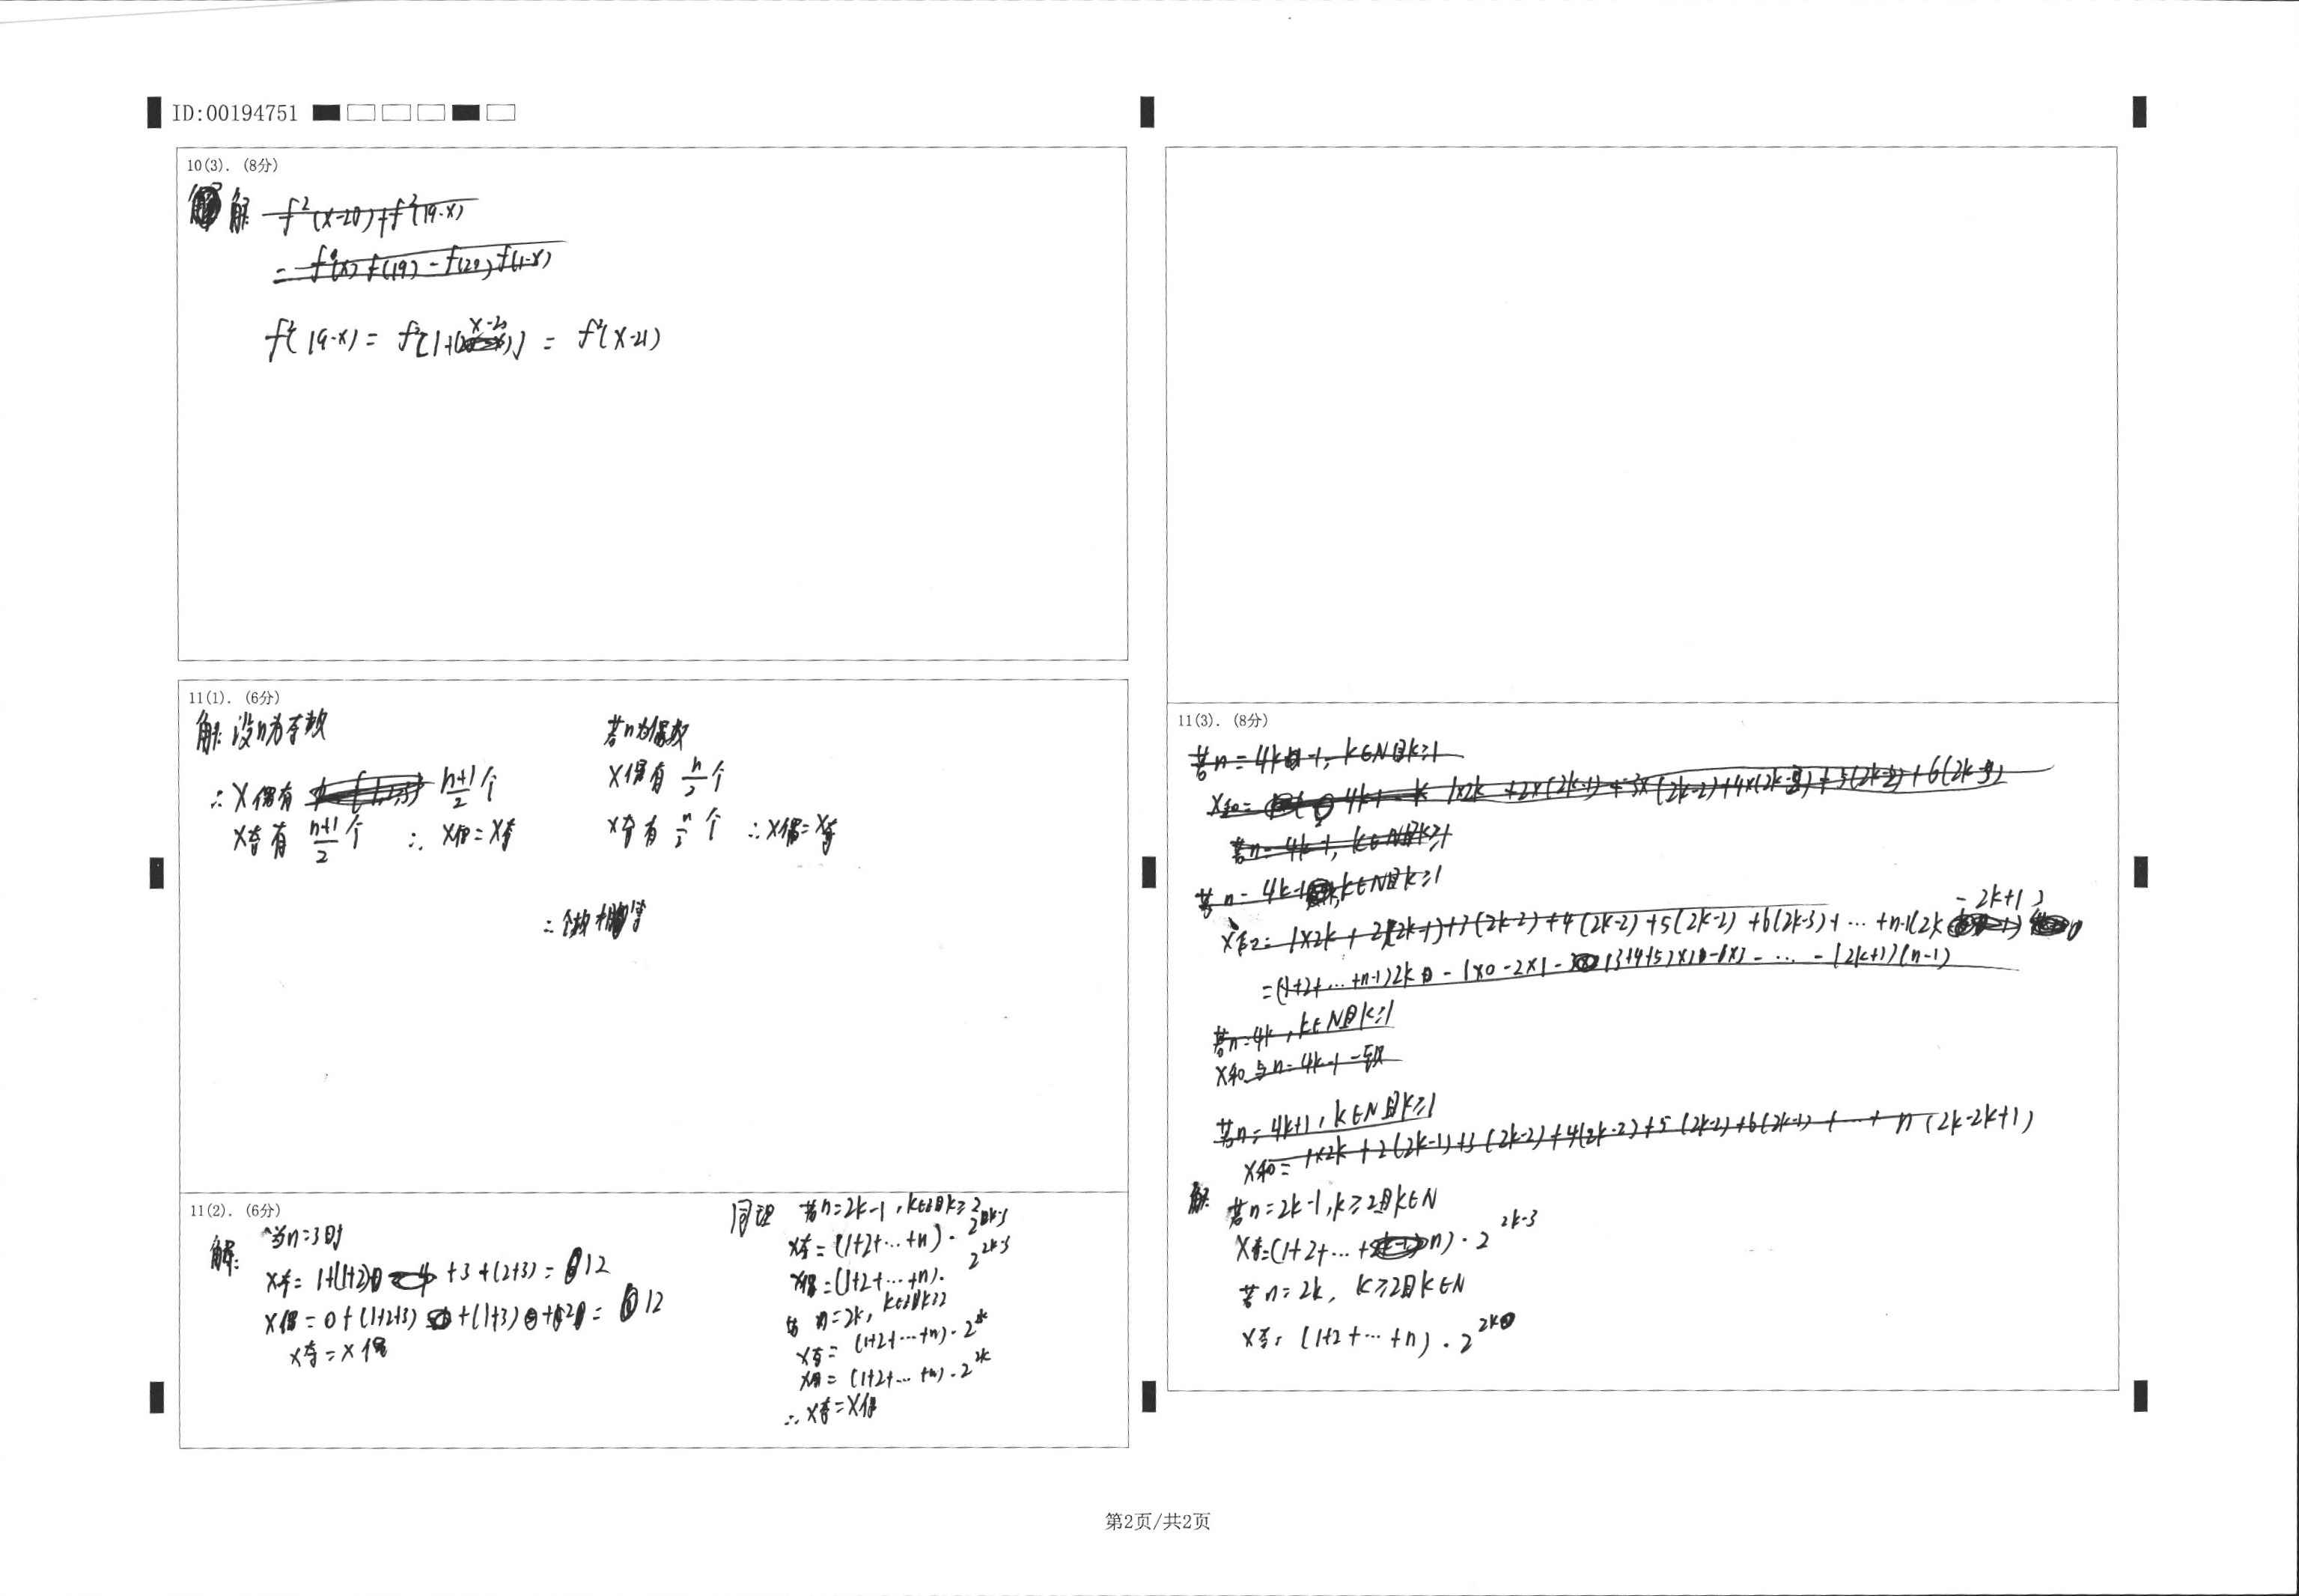 ID:00194751
10(3). (8分)
解 f²(x-20)+f²(19-x)
= f(x) f(19) - f(20) f(1-x)
f²(19-x) = f²[1+(x-20)] = f²(x-21)
11(1). (6分)
解: 设n为奇数
∴X偶有 n+1/2 个
X奇有 n+1/2 个 ∴ X偶=X奇
若n为偶数
X偶有 n/2 个
X奇有 n/2 个 ∴X偶=X奇
∴个数相等
11(2). (6分)
解: 当n=3时
X奇= 1+(1+2) +3+(2+3) = 12
X偶=0+(1+2+3) +(1+3) +2 = 12
X奇=X偶
同理 若n=2k-1, k∈Z且k≥2
X奇=(1+2+…+n)·2^2k-3
X偶=(1+2+…+n)·2^2k-3
若 n=2k, k∈Z且k≥2
X奇= (1+2+…+n)·2^2k
X偶= (1+2+…+n)·2^2k
∴X奇=X偶
11(3). (8分)
若n=4k-1, k∈N且k≥1
X和= 1×2k +2×(2k-1)+3×(2k-2)+4×(2k-2)+5(2k-2)+6(2k-3)
若n=4k-1, k∈N且k≥1
若n=4k-1, k∈N且k≥1
X和= 1×2k+2(2k-1)+3(2k-2)+4(2k-2)+5(2k-2)+6(2k-3)+…+n-1(2k-2k+1)
=(1+2+…+n-1)2k-1×0-2×1-(3+4+5)×2-6×3-…-(2k+1)(n-1)
若n=4k, k∈N且k≥1
X和与n=4k-1一致
若n=4k+1, k∈N且k≥1
X和= 1×2k+2(2k-1)+3(2k-2)+4(2k-2)+5(2k-2)+6(2k-3)+…+n(2k-2k+1)
解: 若n=2k-1, k≥2且k∈N
X奇=(1+2+…+n)·2^2k-3
若n=2k, k≥2且k∈N
X奇=(1+2+…+n)·2^2k
第2页/共2页